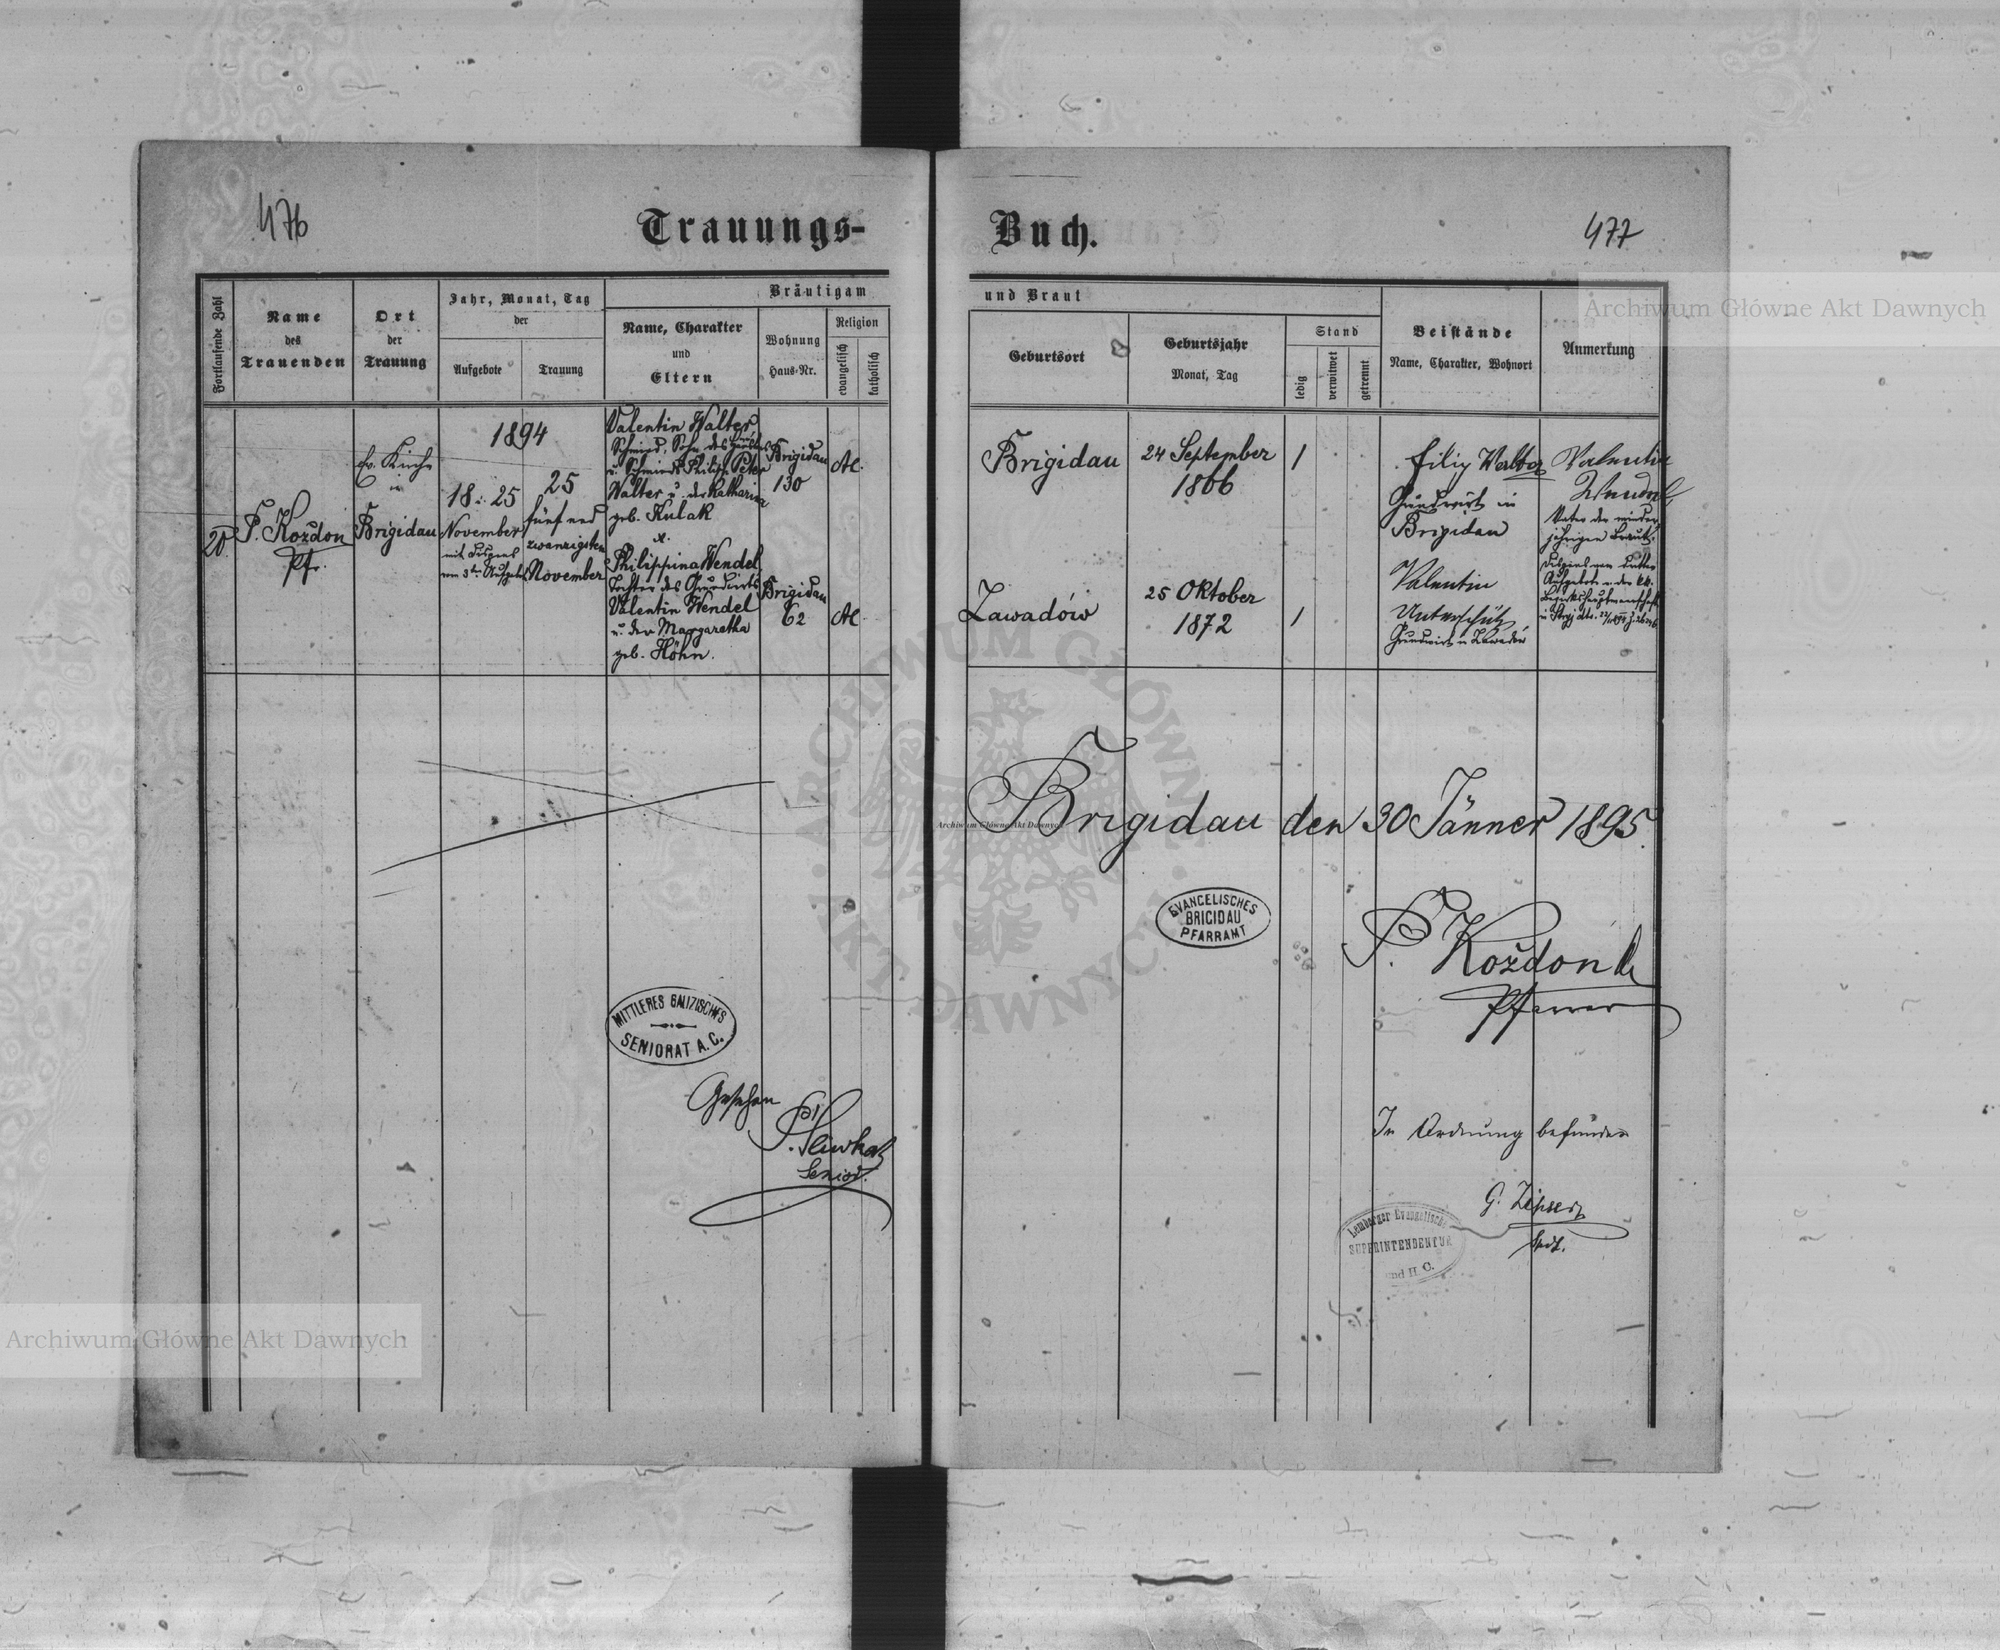 476
Trauungs-
Buch.
477
Archiwum Główne Akt Dawnych
Fortlaufende Zahl
Name
des
Trauenden
Ort
der
Trauung
Jahr, Monat, Tag
der
Aufgebote
Trauung
Bräutigam
Name, Charakter
und
Eltern
Wohnung
Haus-Nr.
Religion
evangelisch
katholisch
und Braut
Geburtsort
Geburtsjahr
Monat, Tag
Stand
ledig
verwitwet
getrennt
Beistände
Name, Charakter, Wohnort
Anmerkung
20.
P. Kożdon
Pfr.
Ev. Kirche
in
Brigidau
1894
18 u. 25
November
mit Dispens
vom 3ten Aufgebot
25
fünf und
zwanzigsten
November
Valentin Walter
Schmied, Sohn des
u. Schmieds Philipp Peter
Walter u. der Katharina
geb. Kulak
u.
Philippina Wendel
Tochter des Grundwirts
Valentin Wendel
u. der Margaretha
geb. Höhn.
Brigidau
130
Brigidau
62
AC.
AC.
Brigidau
24 September
1866
1
Zawadów
25 Oktober
1872
1
Filip Walter
Grundwirt in
Brigidau
Valentin
Unterschütz
Grundwirt in Zawadów
Valentin
Wendel
Vater der minder-
jährigen Braut.
Dispens vom dritten
Aufgebote v. der kk.
Bezirkshauptmannschaft
in Stryj
Brigidau den 30 Jänner 1895.
Archiwum Główne Akt Dawnych
ARCHIWUM GŁÓWNE
AKT DAWNYCH
EVANGELISCHES
BRIGIDAU
PFARRAMT
P. Kożdon
Pfarrer
MITTLERES GALIZISCHES
SENIORAT A.C.
Gesehen
Senior.
In Ordnung befunden
G. Zipser
Spdt.
Lemberger Evangelische
SUPERINTENDENTUR
und H. C.
Archiwum Główne Akt Dawnych